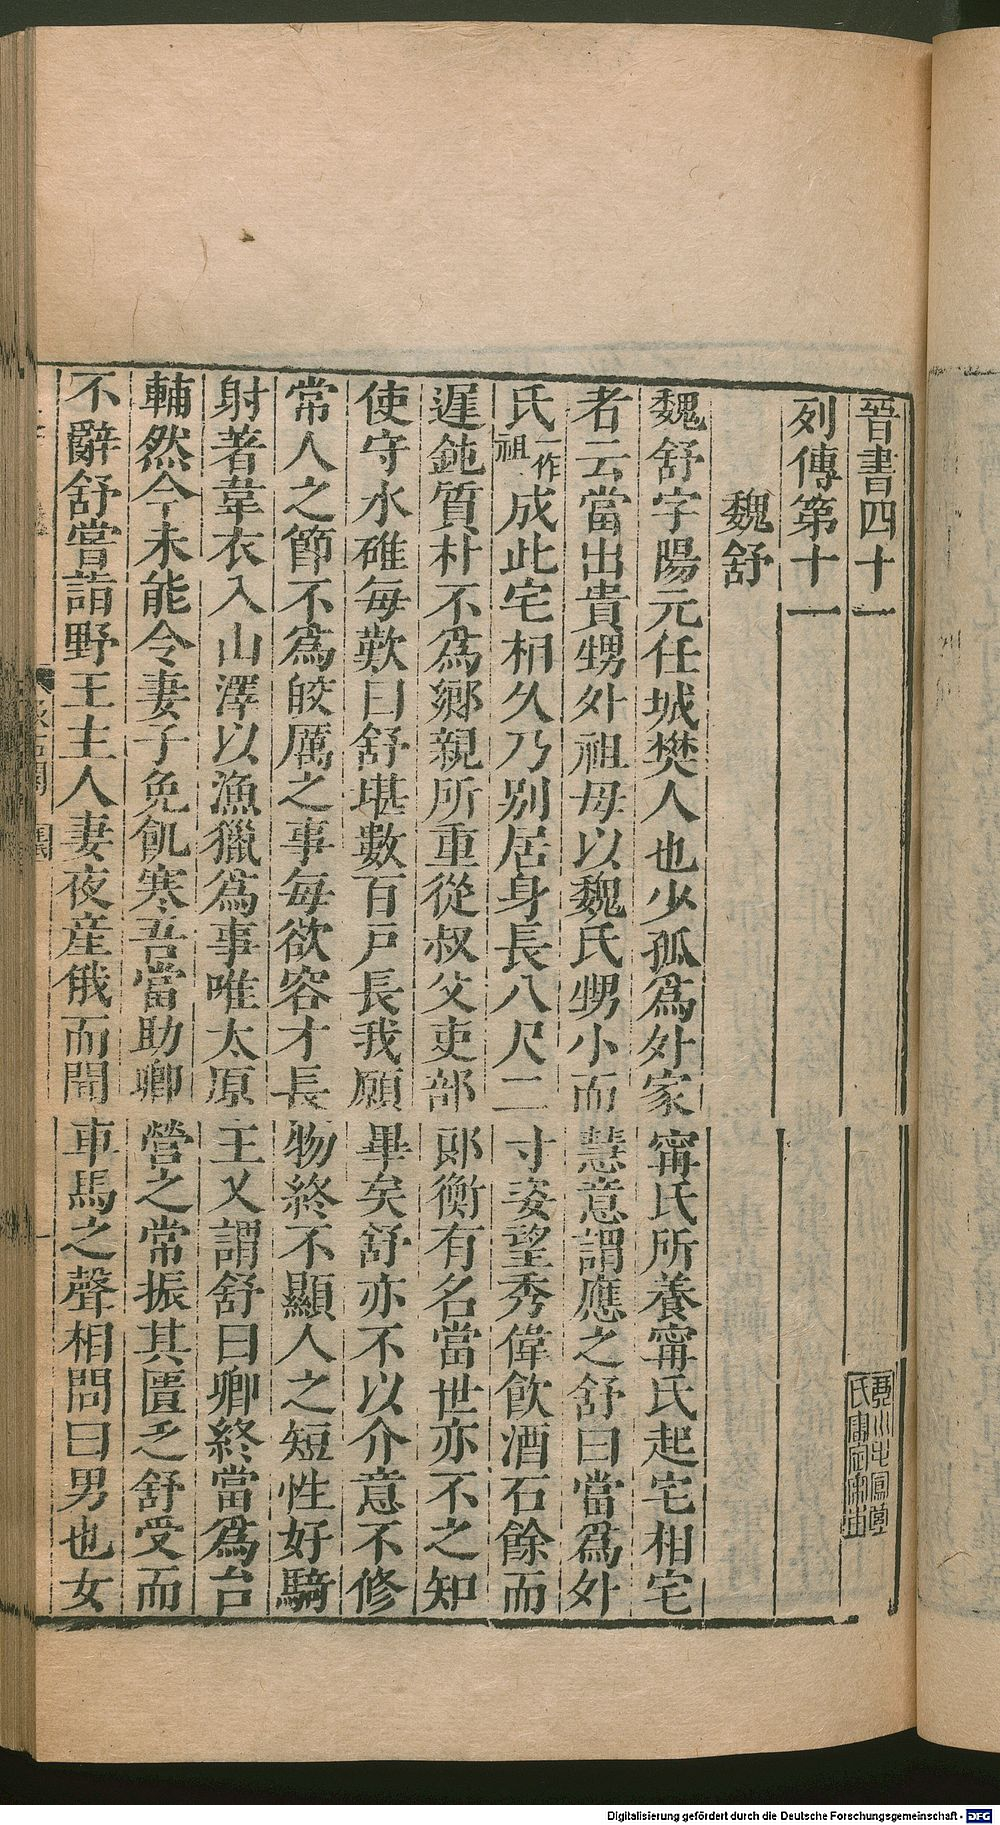 晉書四十一
列傳第十一
魏舒
魏舒字陽元任城樊人也少孤爲外家甯氏所養甯氏起宅相宅
者云當出貴甥外祖母以魏氏甥小而慧意謂應之舒曰當爲外
氏一作祖成此宅相久乃別居身長八尺二寸姿望秀偉飲酒石餘而
遲鈍質朴不爲鄉親所重從叔父吏部郎衡有名當世亦不之知
使守水碓每歎曰舒堪數百戶長我願畢矣舒亦不以介意不修
常人之節不爲皎厲之事每欲容才長物終不顯人之短性好騎
射著韋衣入山澤以漁獵爲事唯太原王乂謂舒曰卿終當爲台
輔然今未能令妻子免飢寒吾當助卿營之常振其匱乏舒受而
不辭舒嘗詣野王主人妻夜産俄而聞車馬之聲相問曰男也女
Digitalisierung gefördert durch die Deutsche Forschungsgemeinschaft - DFG